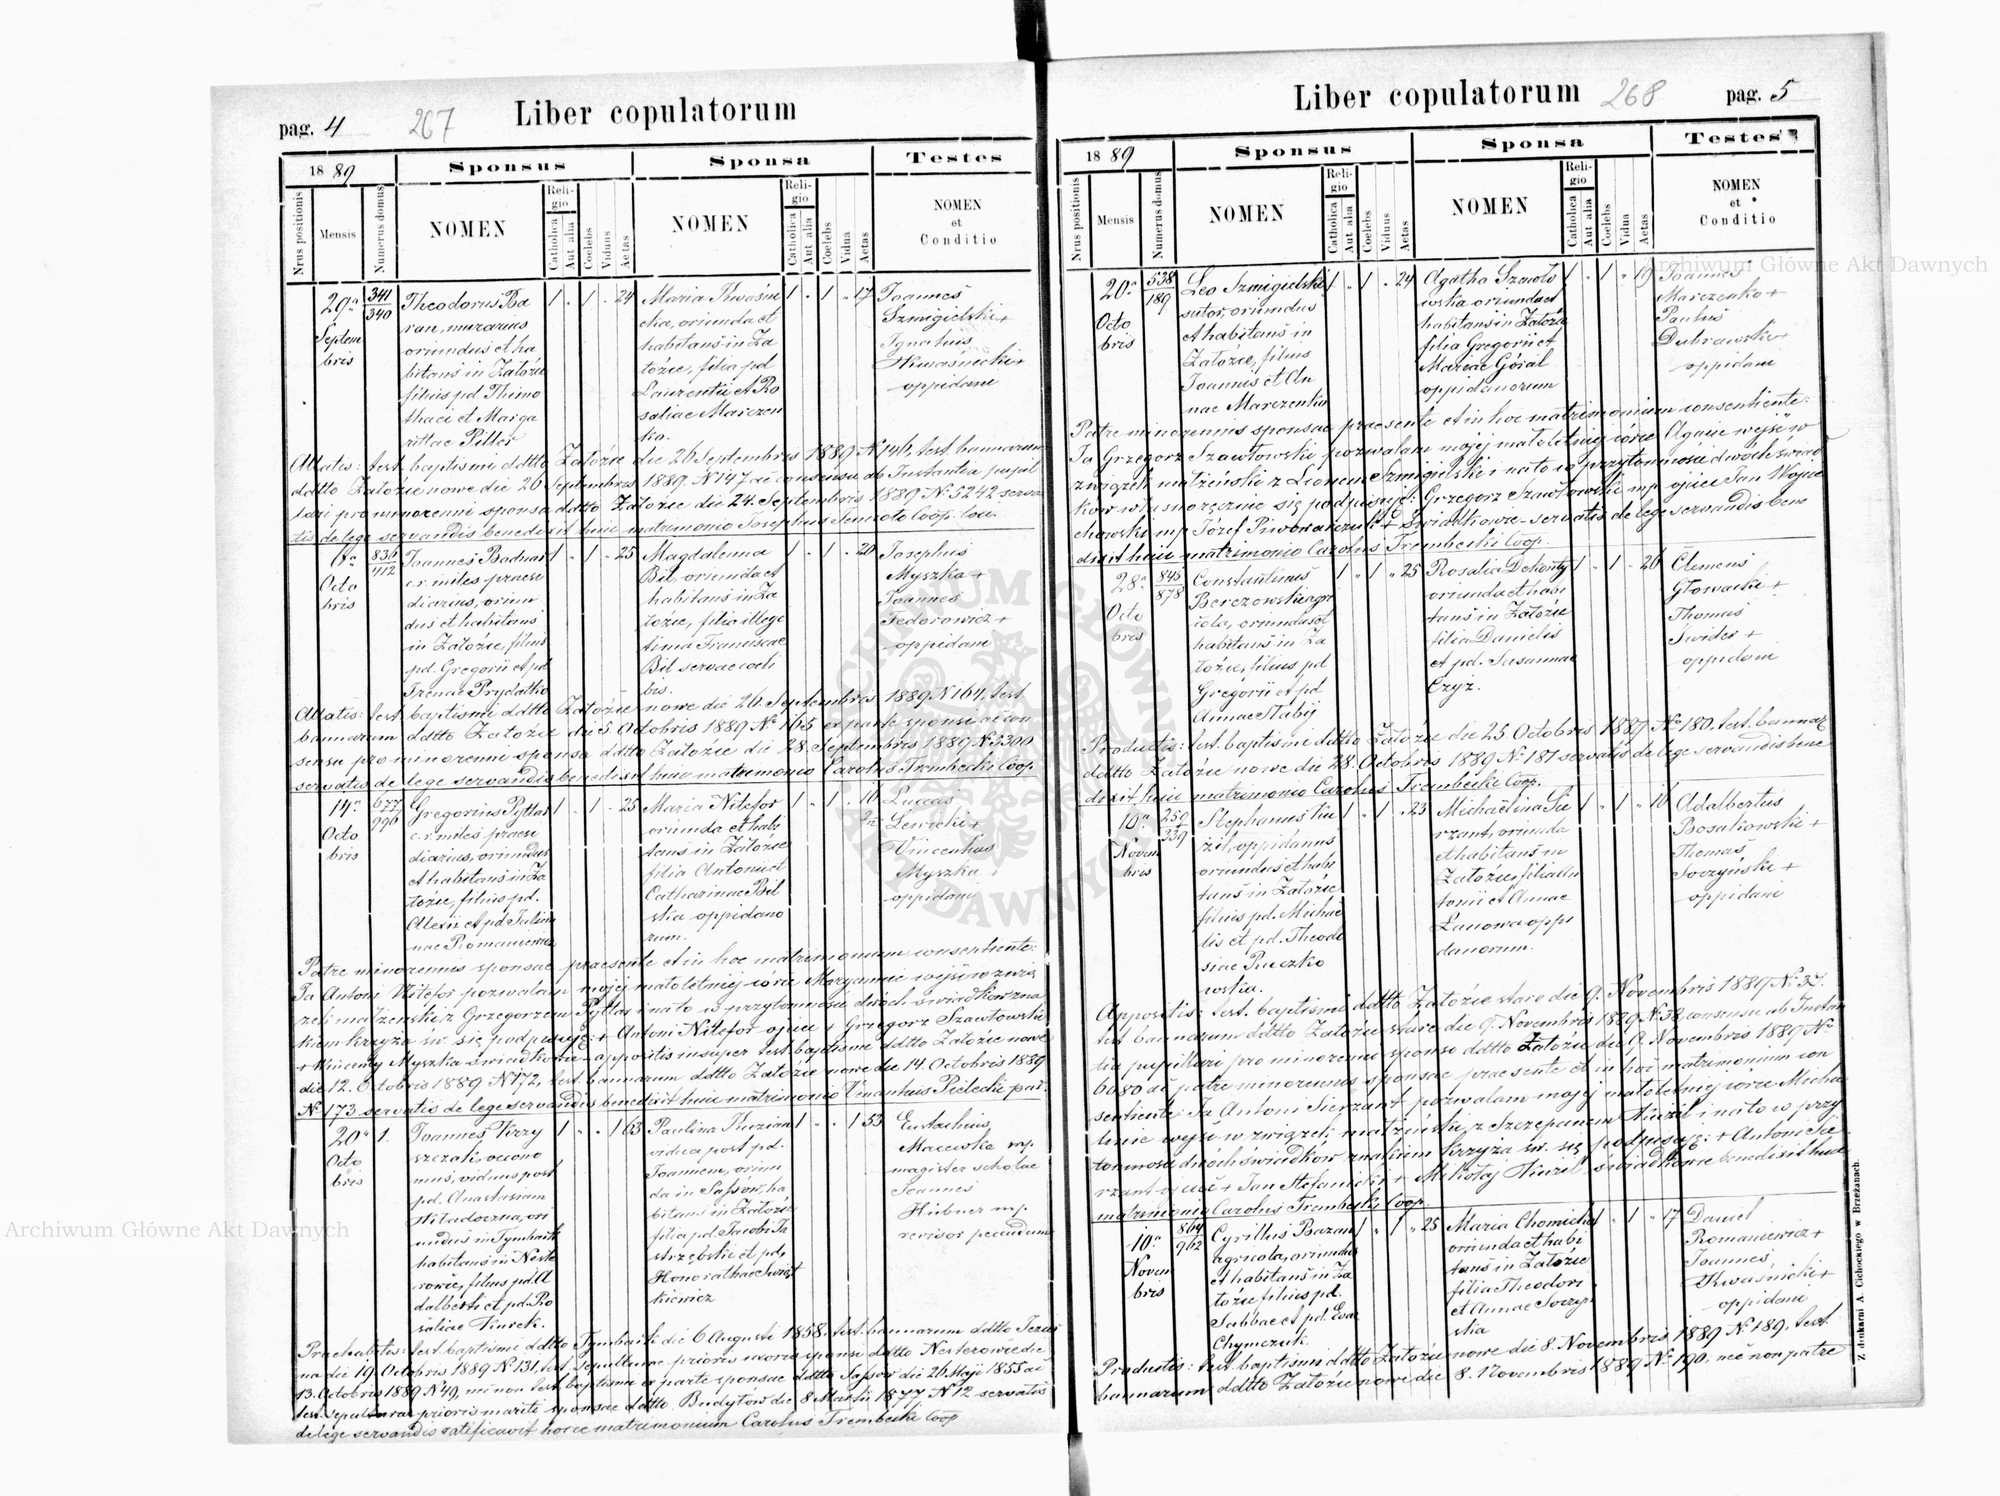 pag. 4
267
Liber copulatorum
1889
Sponsus
Sponsa
Testes
Nrus positionis
Mensis
Numerus domus
NOMEN
Religio
Catholica
Aut alia
Coelebs
Viduus
Aetas
NOMEN
Religio
Catholica
Aut alia
Coelebs
Vidua
Aetas
NOMEN
et
Conditio
29a
Septem
bris
341
340
Theodorus Ba
ran, murarius
oriundus et ha
bitans in Załoźce
filius pd. Thimo
thaei et Marga
rittae Pitter
1 . 1 . 24
Maria Kwaśni
cka, oriunda et
habitans in Za
łoźce, filia pd
Laurentii et Ro
saliae Marczen
ko.
1 . 1 . 17
Joannes
Szmigielski +
Ignatius
Kwaśnicki +
oppidani
Allatis: test. baptismi ddtto Załoźce die 26 Septembris 1889 N 146, test. bannorum
ddtto Załoźce nowe die 26 Septembris 1889 N 147 ac consensu ab Instantia pupil
lari pro minorenni sponsa ddtto Załoźce die 24. Septembris 1889 N. 5242 serva
tis de lege servandis benedixit huic matrimonio Josephus Coop. loci
6a
Octo
bris
836
412
Joannes Badnar
c. r. miles praesi
diarius, oriun
dus et habitans
in Załoźce, filius
pd. Gregorii et pd
Irenae Prydatko
1 . 1 . 25
Magdalena
Bil, oriunda et
habitans in Za
łoźce, filia illegi
tima Franciscae
Bil servae coeli
bis.
1 . 1 . 20
Josephus
Myszka +
Joannes
Fedorowicz +
oppidani
Allatis: test. baptismi ddtto Załoźce nowe die 26. Septembris 1889 N 164, test.
bannorum ddtto Załoźce die 5. Octobris 1889 No 165 ex parte sponsi ac con
sensu pro minorenni sponsa ddtto Załoźce die 28. Septembris 1889 N 5300
servatis de lege servandis benedixit huic matrimonio Carolus Trembecki Coop
14a
Octo
bris
677
996
Gregorius Pyttai
c. r. miles praesi
diarius, oriundus
et habitans in Za
łoźce, filius pd.
Alexii et pd Julian
nae Romaniewicz
1 . 1 . 25
Maria Nitefor
oriunda et habi
tans in Załoźce
filia Antonii et
Catharinae Bil
ska oppidano
rum.
1 . 1 . 16
Lucas
Lewicki +
Vincentius
Myszka +
oppidani
Patre minorennis sponsae praesente et in hoc matrimonium consentiente:
Ja Antoni Nitefor pozwalam mojej małoletniej córce Maryannie wejść w zwią
zek małżeński z Grzegorzem Pyttai i na to w przytomności dwóch świadków zna
kiem krzyża św. się podpisuję: + Antoni Nitefor ojciec + Grzegorz Szawłowski
+ Wincenty Myszka świadkowie - appositis insuper test. baptismi ddtto Załoźce nowe
die 12. Octobris 1889 N 172, test. bannorum ddtto Załoźce nowe die 14. Octobris 1889
No 173 servatis de lege servandis benedixit huic matrimonio Venantius Pielecki par.
20a
Octo
bris
1.
Joannes Krzy
szczak, oecono
mus, viduus post
pd. Anastasiam
Wiładoczna, ori
undus in Tymbark
habitans in Neste
rowce, filius pd. A
dalberti et pd. Ro
saliae Kurek.
1 . . 1 63
Paulina Kuzian
vidua post pd.
Joannem, oriun
da in Sassów, ha
bitans in Załoźce
filia pd. Jacobi Ja
strzębski et pd.
Honorathae Świąt
kiewicz
1 . . 1 53
Eustachius
Macewska mp.
magister scholae
Joannes
Hübner mp.
revisor pecudum
Praehabitis: test. baptismi ddtto Tymbark die 6 Augusti 1858, test. bannorum ddtto Jezier
na die 19. Octobris 1889 N 131, test. sepulturae prioris uxoris sponsi ddtto Nesterowce die
13. Octobris 1889 N 49, nec non test. baptismi ex parte sponsae ddtto Sassów die 26. Maji 1855 ac
test. sepulturae prioris mariti sponsae ddtto Budyłów die 8 Martii 1877 N 12 servatis
de lege servandis ratificavit hocce matrimonium Carolus Trembecki Coop
Liber copulatorum
268
pag. 5
1889
Sponsus
Sponsa
Testes
Nrus positionis
Mensis
Numerus domus
NOMEN
Religio
Catholica
Aut alia
Coelebs
Viduus
Aetas
NOMEN
Religio
Catholica
Aut alia
Coelebs
Vidua
Aetas
NOMEN
et
Conditio
20a
Octo
bris
538
189
Leo Szmigielski
sutor oriundus
et habitans in
Załoźce, filius
Joannis et An
nae Marczenko
1 . 1 . 24
Agatha Szawło
wska oriunda et
habitans in Załoźce
filia Gregorii et
Mariae Góral
oppidanorum
1 . 1 . 19
Joannes
Marczenko +
Paulus
Dubrawski +
oppidani
Patre minorennis sponsae praesente et in hoc matrimonium consentiente:
Ja Grzegorz Szawłowski pozwalam mojej małoletniej córce Agacie wejść w
związek małżeński z Leonem Szmigielski i na to w przytomności dwóch świad
ków własnoręcznie się podpisuję: Grzegorz Szawłowski mp ojciec Jan Wojcie
chowski mp Józef Piwowarczuk + świadkowie - servatis de lege servandis bene
dixit huic matrimonio Carolus Trembecki Coop.
28a
Octo
bris
845
878
Constantinus
Berezowski agri
cola, oriundus et
habitans in Za
łoźce, filius pd
Gregorii et pd
Annae Słabij
1 . 1 . 25
Rosalia Dekonty
oriunda et habi
tans in Załoźce
filia Danielis
et pd. Susannae
Czyż.
1 . 1 . 26
Clemens
Głowacki +
Thomas
Swider +
oppidani
Productis: test. baptismi ddtto Załoźce die 25 Octobris 1889 No 180, test. bannor.
ddtto Załoźce nowe die 28. Octobris 1889 No 181 servatis de lege servandis bene
dixit huic matrimonio Carolus Trembecki Coop.
10a
Novem
bris
259
339
Stephanus Ku
zil, oppidanus
oriundus et habi
tans in Załoźce
filius pd. Michae
lis et pd. Theodo
siae Ruczko
wska.
1 . 1 . 23
Michaëlina Sie
rzant, oriunda
et habitans in
Załoźce, filia An
tonii et Annae
Łanowa oppi
danorum.
1 . 1 . 16
Adalbertus
Bosakowski +
Thomas
Soczyński +
oppidani
Appositis: test. baptismi ddtto Załoźce stare die 9. Novembris 1889 No 37.
test. bannorum ddtto Załoźce stare die 9. Novembris 1889 N 38, consensu ab Instan
tia pupillari pro minorenni sponso ddtto Załoźce die 9. Novembris 1889 No
6080 ac patre minorennis sponsae praesente et in hoc matrimonium con
sentiente: Ja Antoni Sierzant pozwalam mojej małoletniej córce Micha
linie wejść w związek małżeński z Szczepanem Kuzil i na to w przy
tomności dwóch świadków znakiem krzyża św. się podpisuję: + Antoni Sie
rzant ojciec + Jan Stefanicki + Mikołaj Kuzil świadkowie benedixit huic
matrimonio Carolus Trembecki Coop.
10a
Novem
bris
864
962
Cyrillus Bazan
agricola, oriundus
et habitans in Za
łoźce filius pd.
Sabbae et pd. Evae
Chymczuk.
1 . 1 . 25
Maria Chomicka
oriunda et habi
tans in Załoźce
filia Theodori
et Annae Soczyn
ska
1 . 1 . 17
Daniel
Romaniewicz +
Joannes,
Kwasnicki +
oppidani
Productis: test. baptismi ddtto Załoźce nowe die 8. Novembris 1889 No 189, test.
bannorum ddtto Załoźce nowe die 8. Novembris 1889 No 190, nec non patre
Z drukarni A. Cichockiego w Brzeżanach.
Archiwum Główne Akt Dawnych
Archiwum Główne Akt Dawnych
ARCHIWUM GŁÓWNE AKT DAWNYCH